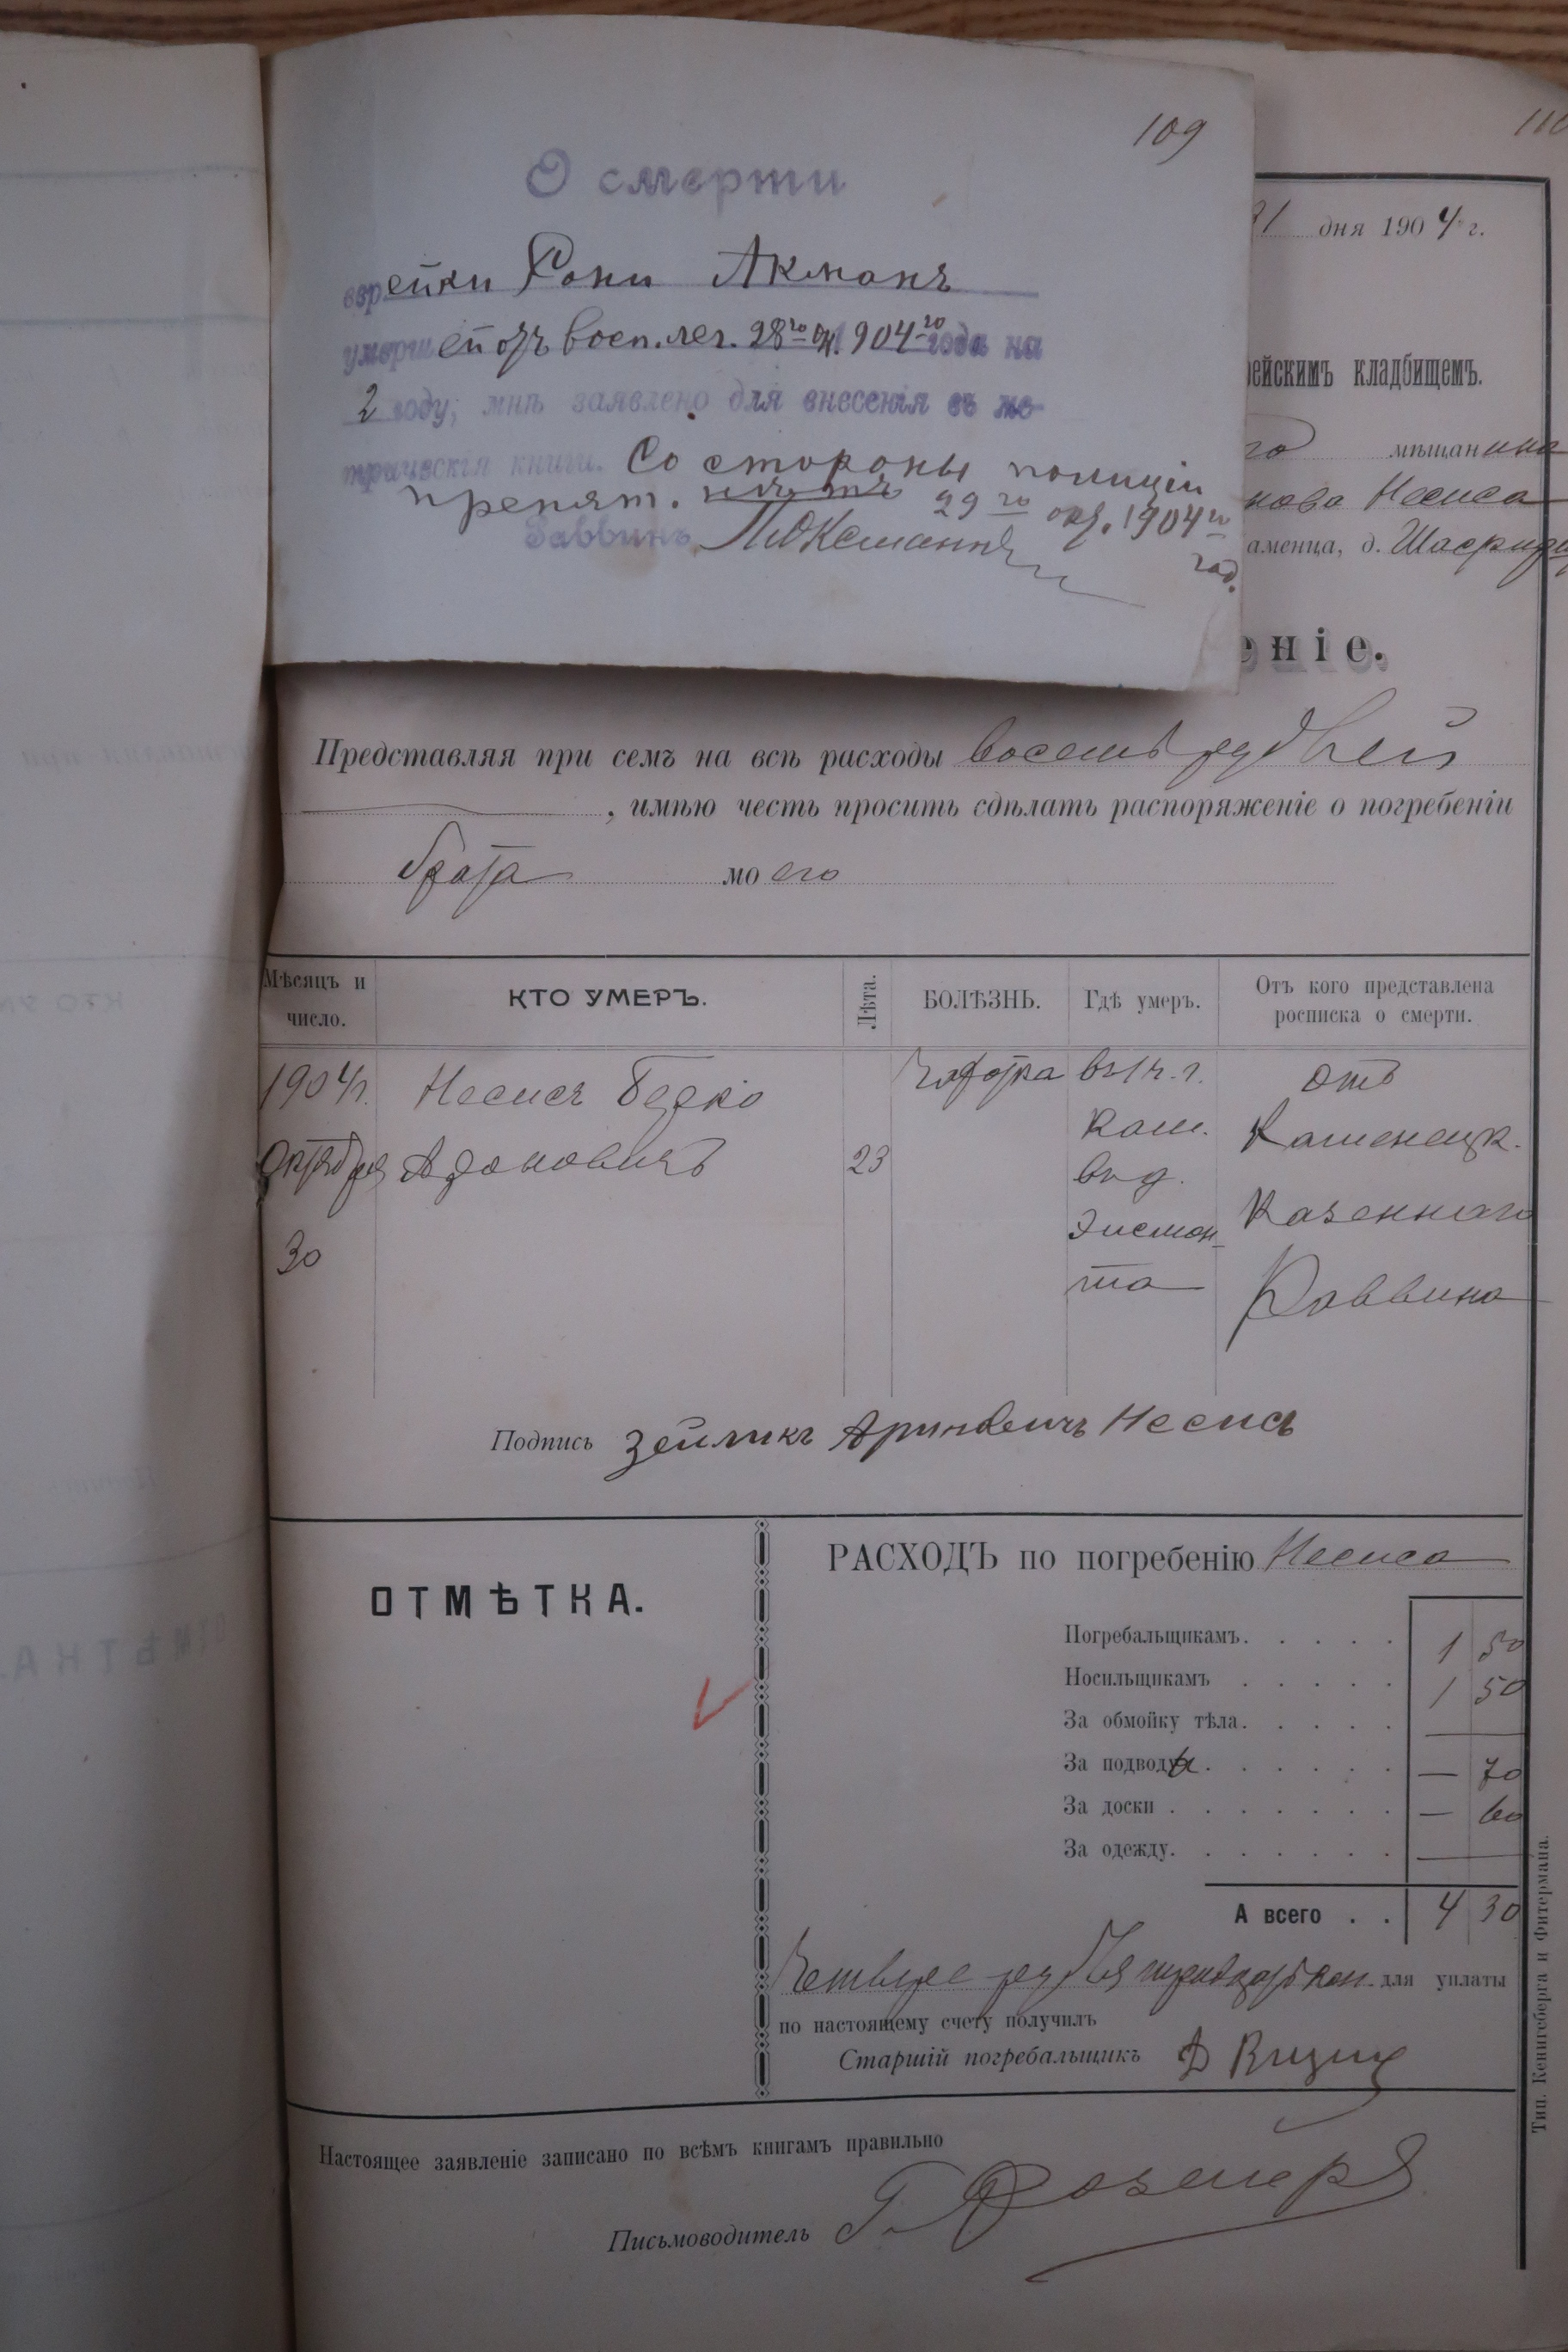 109
О смерти
еврейки Сони Акманъ
умершей отъ восп. лег. 28го Окт. 1904го года на
2 году, мнѣ заявлено для внесенія въ ме-
трическія книги. Со стороны полиціи
препят. нѣтъ 29го окт. 1904го
год.
Раввинъ
110
31 дня 1904 г.
рейскимъ кладбищемъ.
го мѣщанина
нова Несиса
аменца, д.
еніе.
Представляя при семъ на всѣ расходы восемь рублей
, имѣю честь просить сдѣлать распоряженіе о погребеніи
брата моего
Мѣсяцъ и число. КТО УМЕРЪ. Лѣта. БОЛѢЗНЬ. Гдѣ умеръ. Отъ кого представлена росписка о смерти.
1904г. Несисъ Берко Чахотка въ 1 ч. г. Отъ
Октября Ароновичъ 23 Кам. Каменецк.
30 въ д. Казеннаго
Эисман-
та Раввина
Подпись Зейликъ Ариновичъ Несисъ
ОТМѢТКА.
РАСХОДЪ по погребенію Несиса
Погребальщикамъ. 1 50
Носильщикамъ 1 50
За обмойку тѣла. —
За подводы — 70
За доски — 60
За одежду. —
А всего 4 30
Четыре рубля тридцать коп. для уплаты
по настоящему счету получилъ
Старшій погребальщикъ
Настоящее заявленіе записано по всѣмъ книгамъ правильно
Письмоводитель
Тип. Кенигсберга и Фитермана.